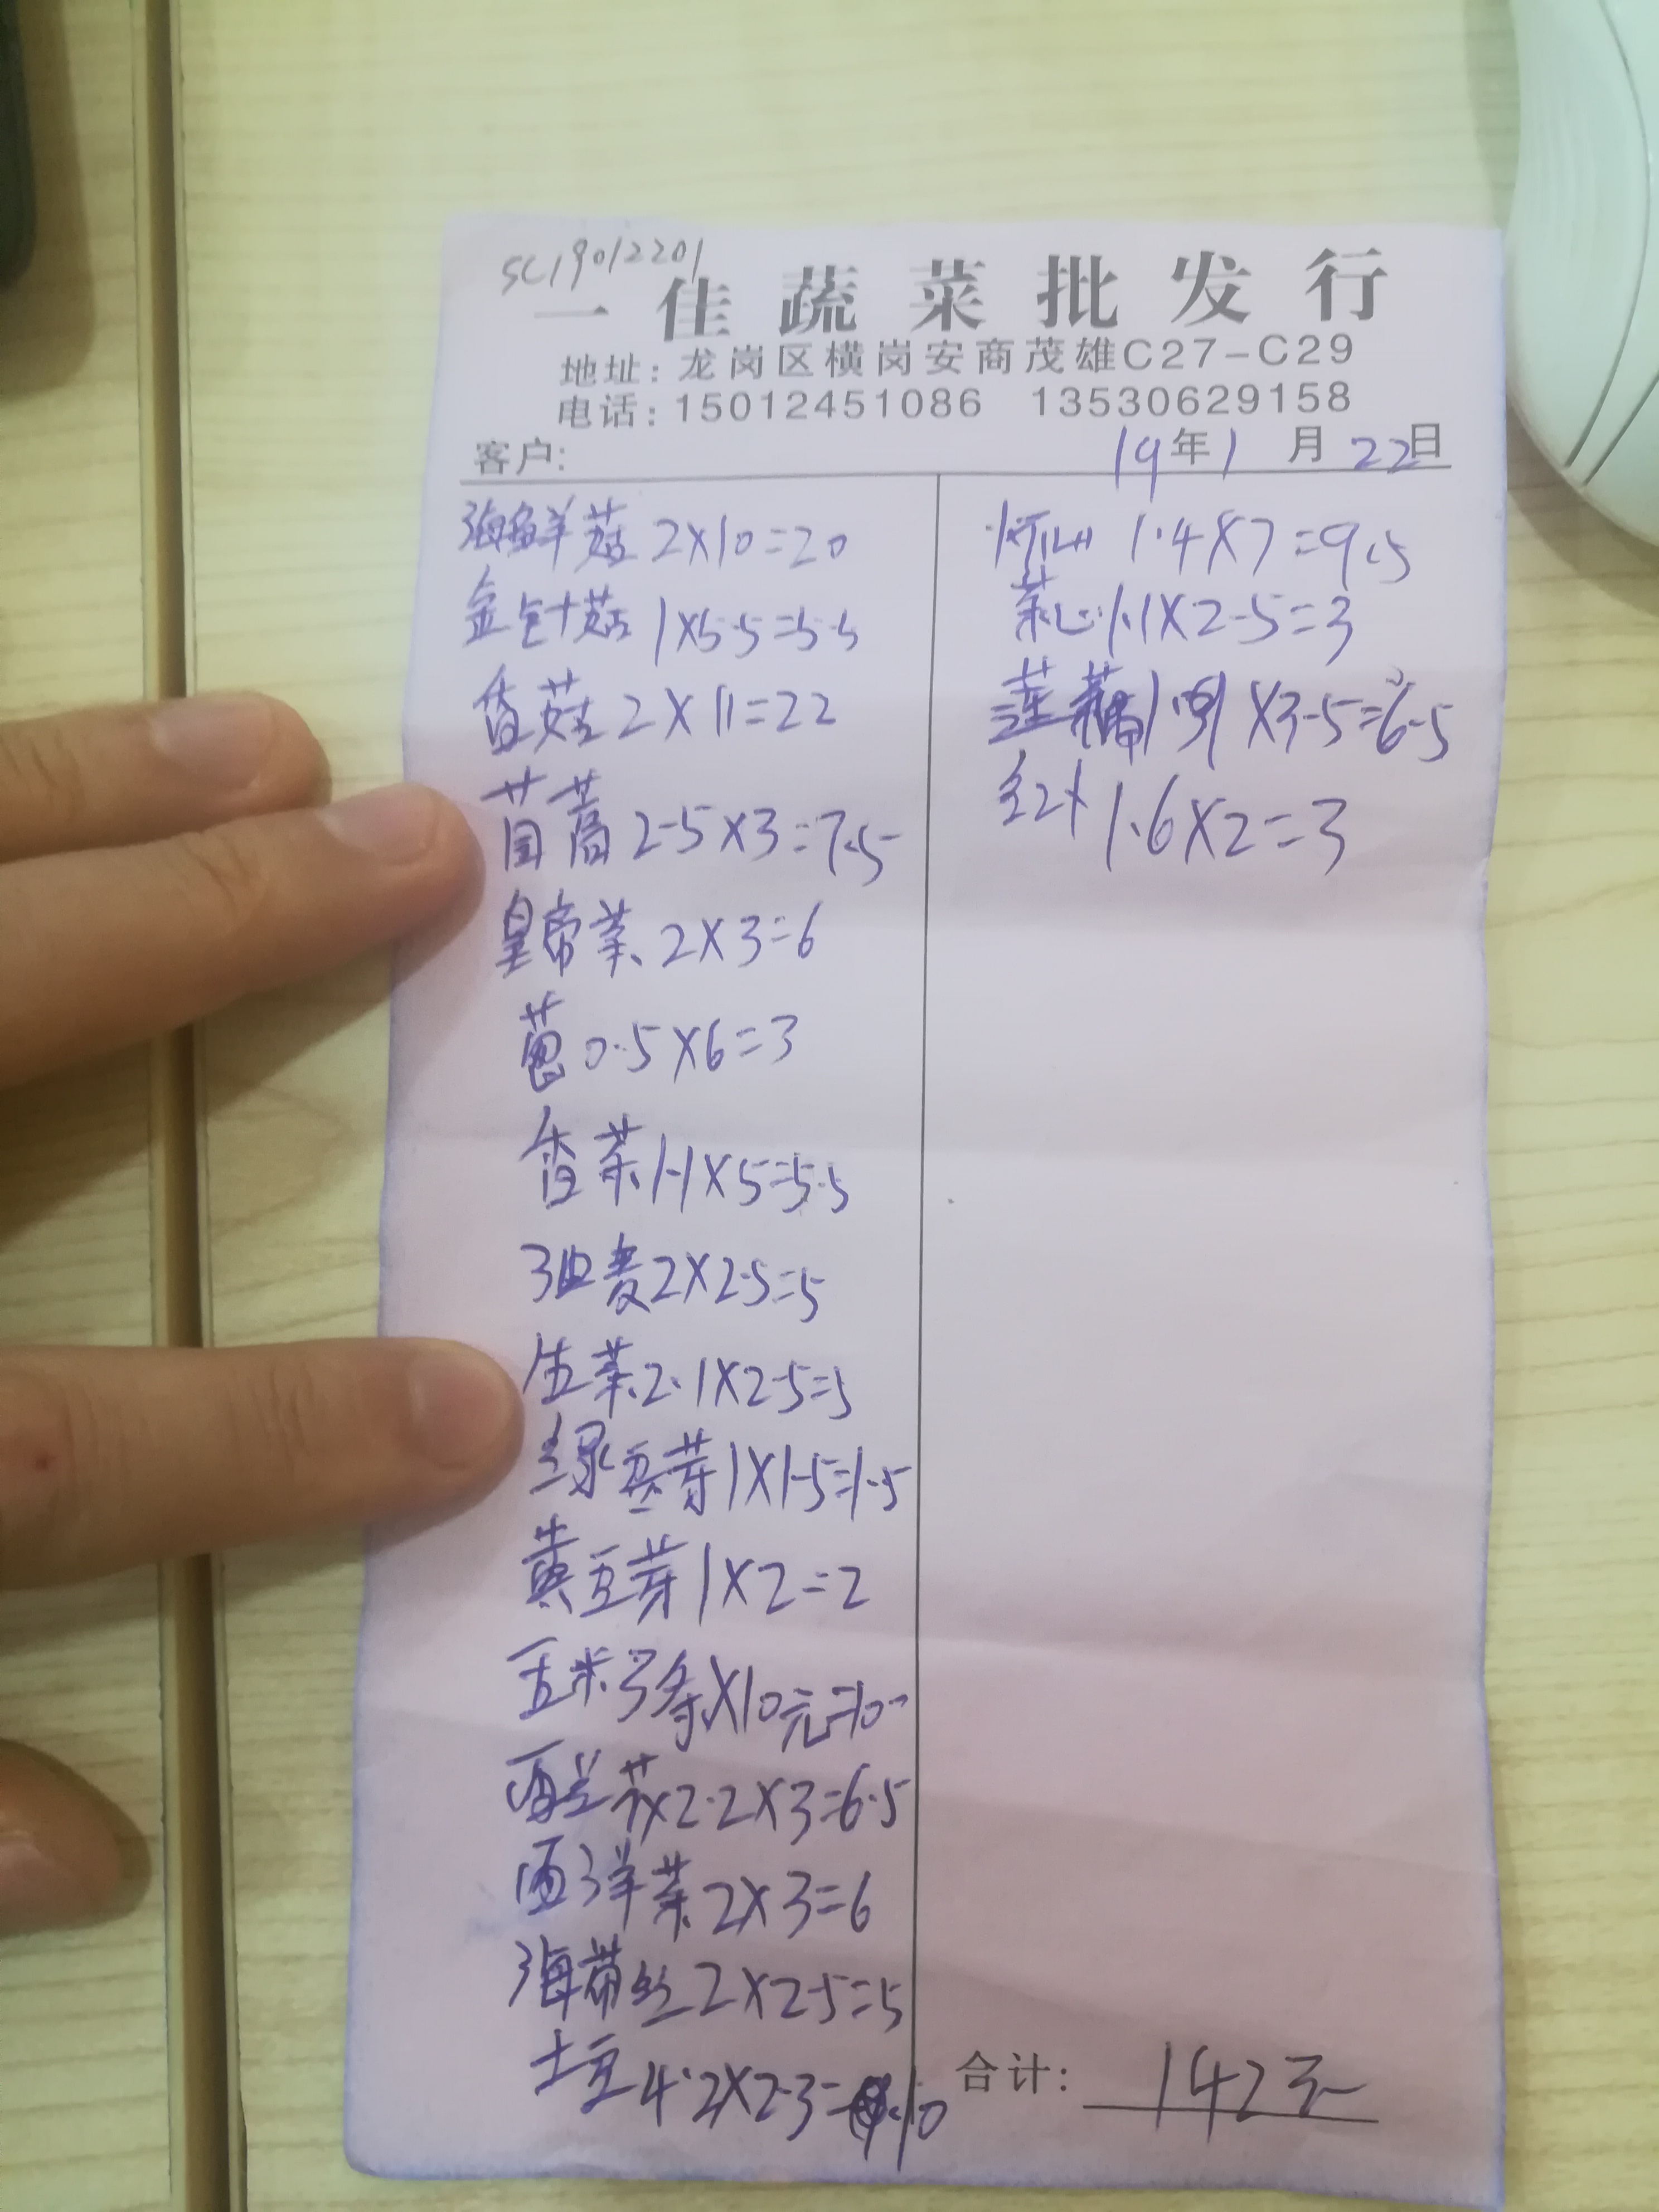 SC19012201
一佳蔬菜批发行
地址：龙岗区横岗安商茂雄C27-C29
电话：15012451086 13530629158
客户：
19年1月22日
海鲜菇 2×10=20
金针菇 1×5.5=5.5
香菇 2×11=22
茼蒿 2.5×3=7.5
皇帝菜 2×3=6
葱 0.5×6=3
香菜 1.1×5=5.5
油麦 2×2.5=5
生菜 2.1×2.5=5
绿豆芽 1×1.5=1.5
黄豆芽 1×2=2
玉米 3条×10元=10-
西兰花 2.2×3=6.5
西洋菜 2×3=6
海带丝 2×2.5=5
土豆 4.2×2.3=10
1.4×7=9.5
菜心 1.1×2.5=3
莲藕 ×3.5=6.5
1.6×2=3
合计：142元